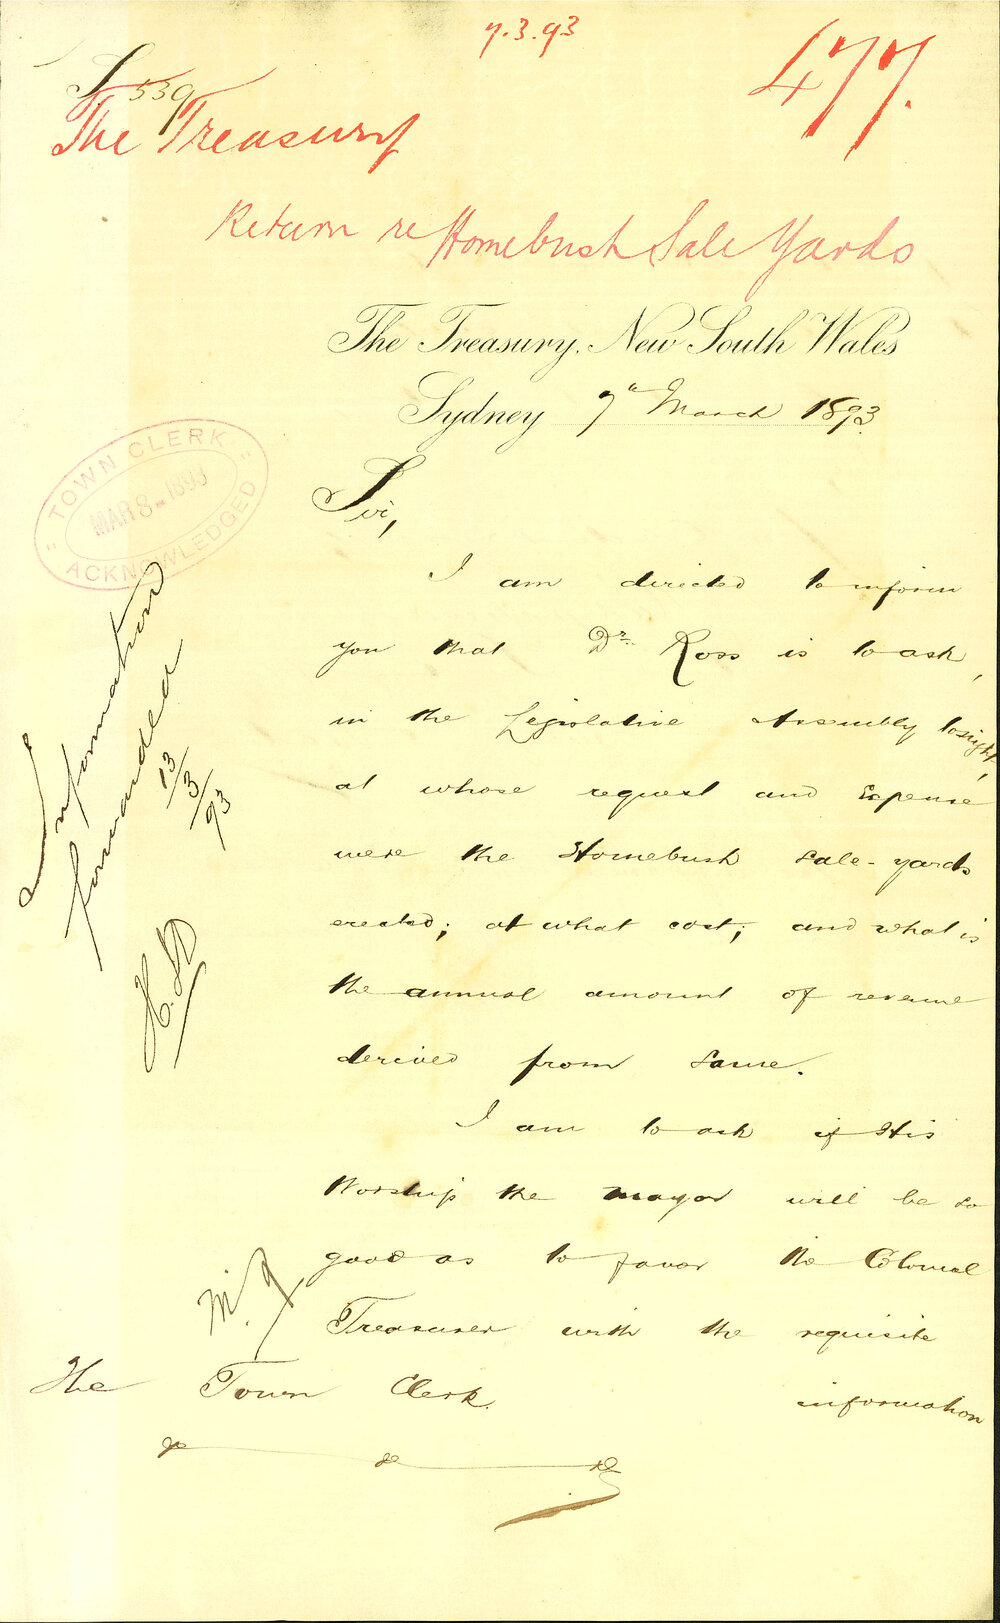 7.3.93
477.
S 539
The Treasury
Return re Homebush Sale Yards
The Treasury, New South Wales
Sydney 7th March 1893
TOWN CLERK
MAR 8 - 1893
ACKNOWLEDGED
Sir,
I am directed to inform
you that Dr. Ross is to ask,
in the Legislative Assembly tonight,
at whose request and expense
were the Homebush sale-yards
erected; at what cost; and what is
the annual amount of revenue
derived from same.
I am to ask if His
Worship the Mayor will be so
good as to favor the Colonial
Treasurer with the requisite
information
The Town Clerk.
&c &c &c
Information
forwarded
13/3/93